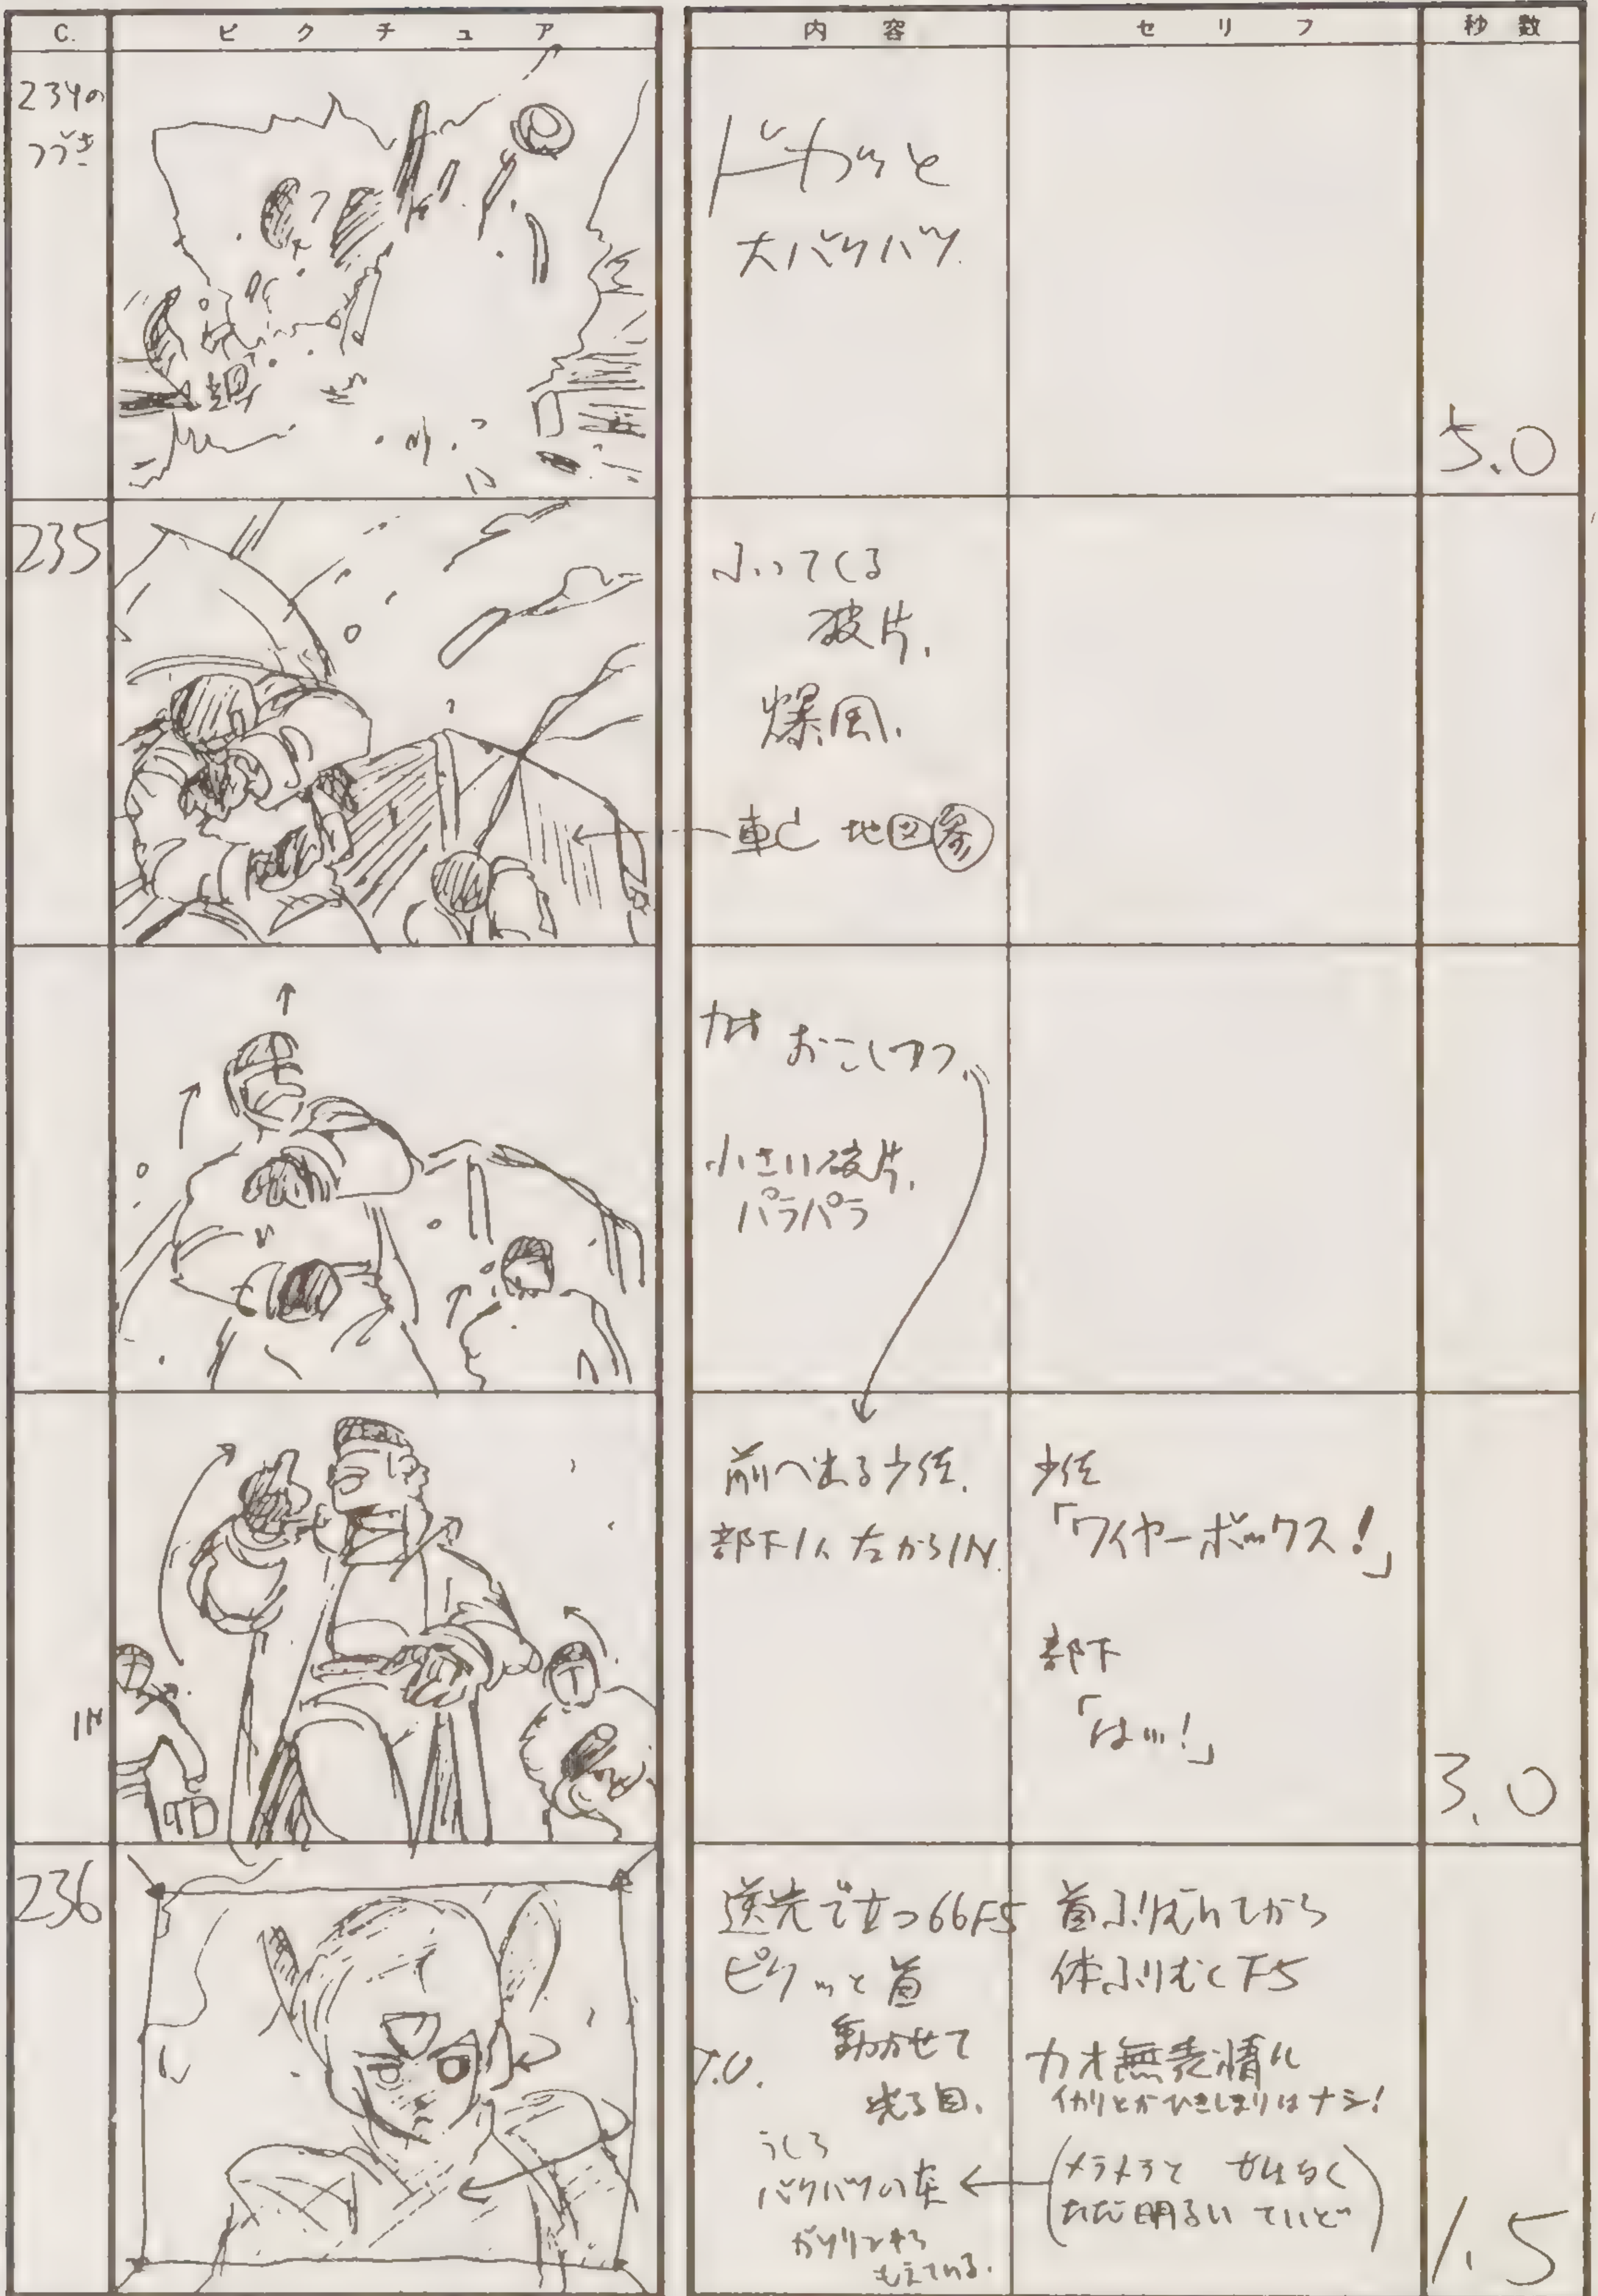 C.
ピクチュア
内容
セリフ
秒数
234の
つづき
ドカッと
大バクハツ.
5.0
235
ふってくる
破片.
爆風.
地図
カオ おこしつつ.
小さい破片.
パラパラ
前へ出る少佐.
部下1人 左からIN.
少佐
「ワイヤーボックス!」
部下
「はッ!」
IN
3.0
236
で立つ66F5
ピクッと首
動かせて
光る目.
T.U.
うしろ
バクハツの
もえている.
首ふりむいてから
体ふりむくF5
カオ無表情に
イカリとかひきしまりはナシ!
(メラメラと かげなく
ただ明るい ていど)
1.5